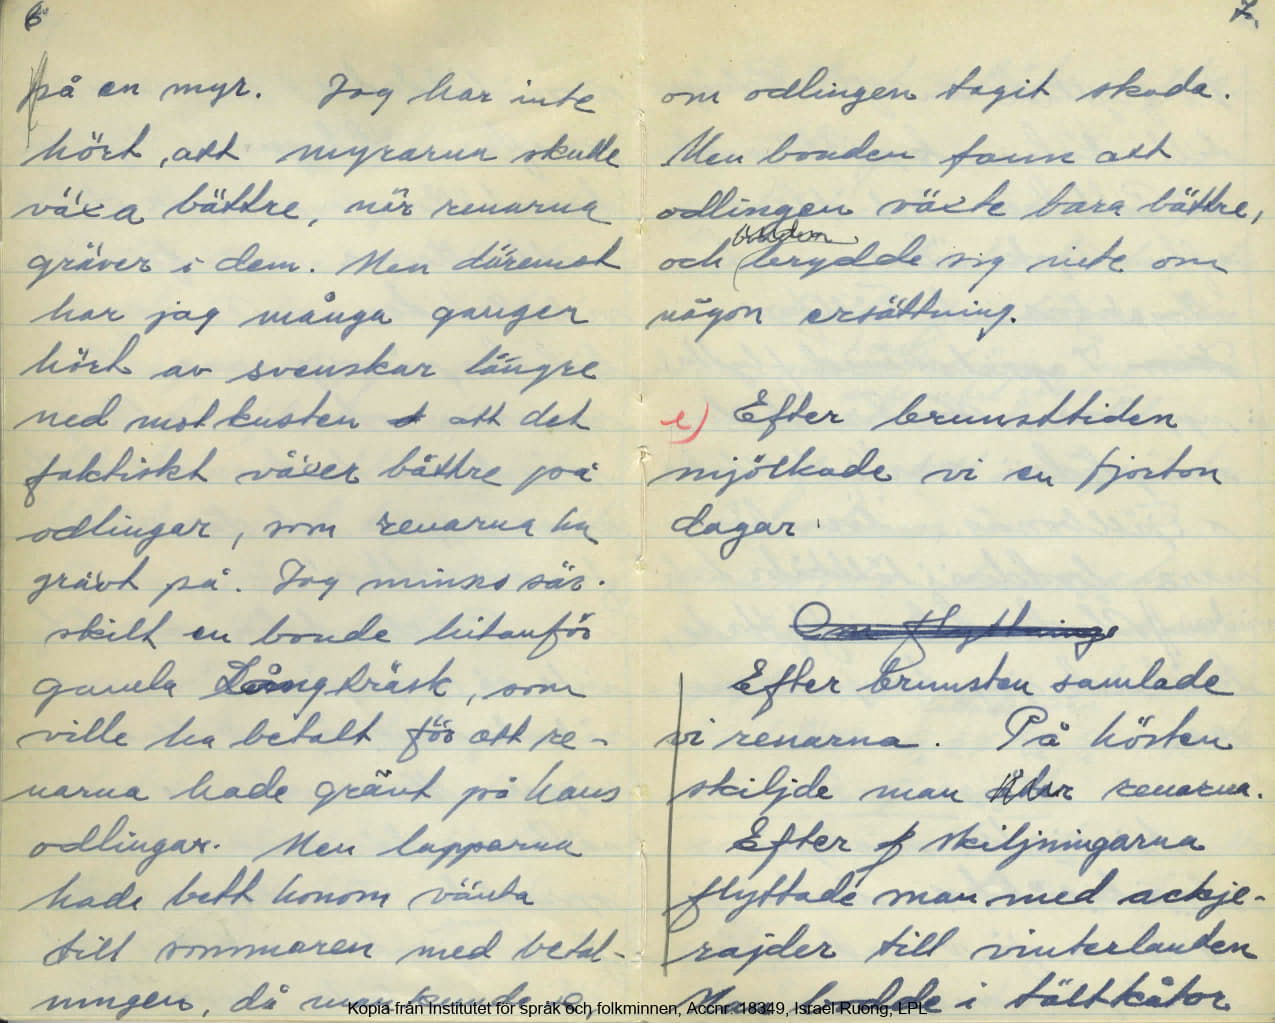 6
på en myr. Jag har inte
hört, att myrarna skulle
växa bättre, när renarna
gräver i dem. Men däremot
har jag många gånger
hört av svenskar längre
ned mot kusten att det
faktiskt växer bättre på
odlingar, som renarna ha
grävt på. Jag minns sär-
skilt en bonde hitanför
gamla Långträsk, som
ville ha betalt för att re-
narna hade grävt på hans
odlingar. Men lapparna
hade bett honom vänta
till sommaren med betal-
ningen, då man kunde se,
7.
om odlingen tagit skada.
Men bonden fann att
odlingen växte bara bättre,
och brydde sig inte om
någon ersättning.
e) Efter brunsttiden
mjölkade vi en fjorton
dagar.
Om flyttning
Efter brunsten samlade
vi renarna. På hösten
skiljde man renarna.
Efter skiljningarna
flyttade man med ackje-
rajder till vinterlanden
Man bodde i tältkåtor
Kopia från Institutet för språk och folkminnen, Accnr. 18349, Israel Ruong, LPL